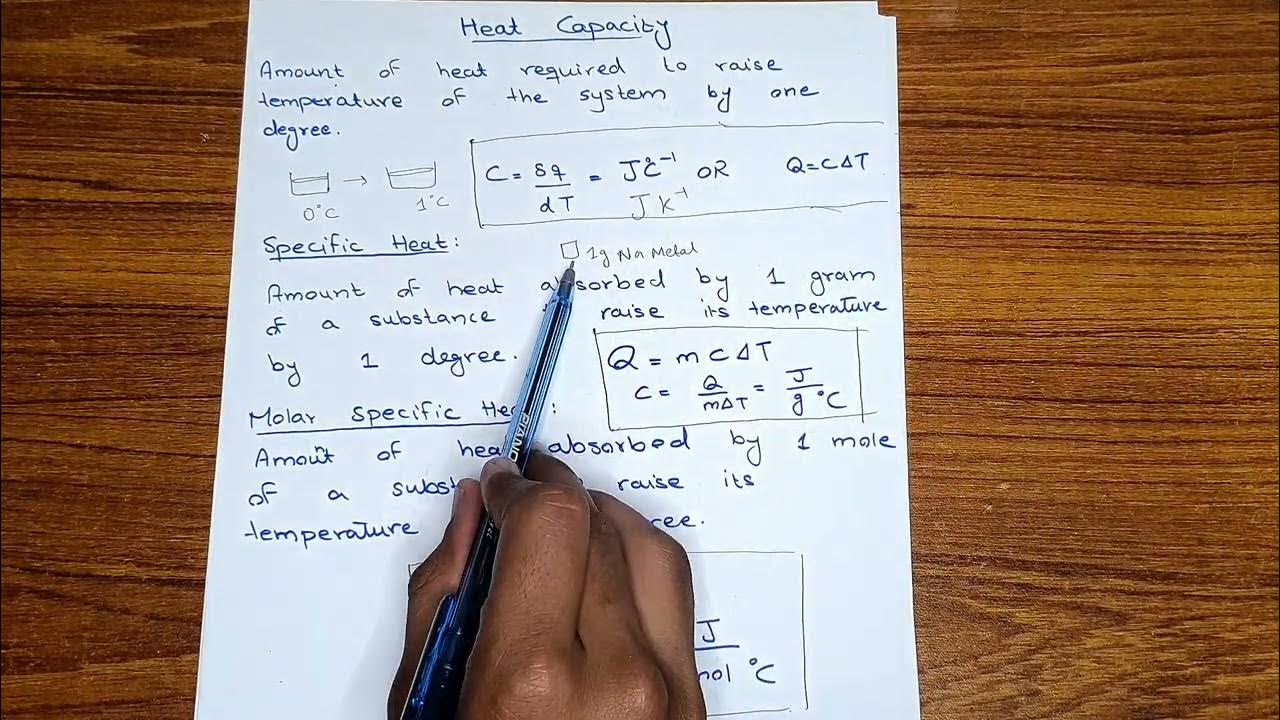 Heat Capacity
Amount of heat required to raise
temperature of the system by one
degree.
C = δq/dT = J°C⁻¹ OR Q=CΔT
J K⁻¹
0°C → 1°C
Specific Heat:
1g Na Metal
Amount of heat absorbed by 1 gram
of a substance raise its temperature
by 1 degree.
Q = mCΔT
C = Q/mΔT = J/g °C
Molar Specific
Amount of absorbed by 1 mole
of a raise its
temperature
J
°C
PIANO